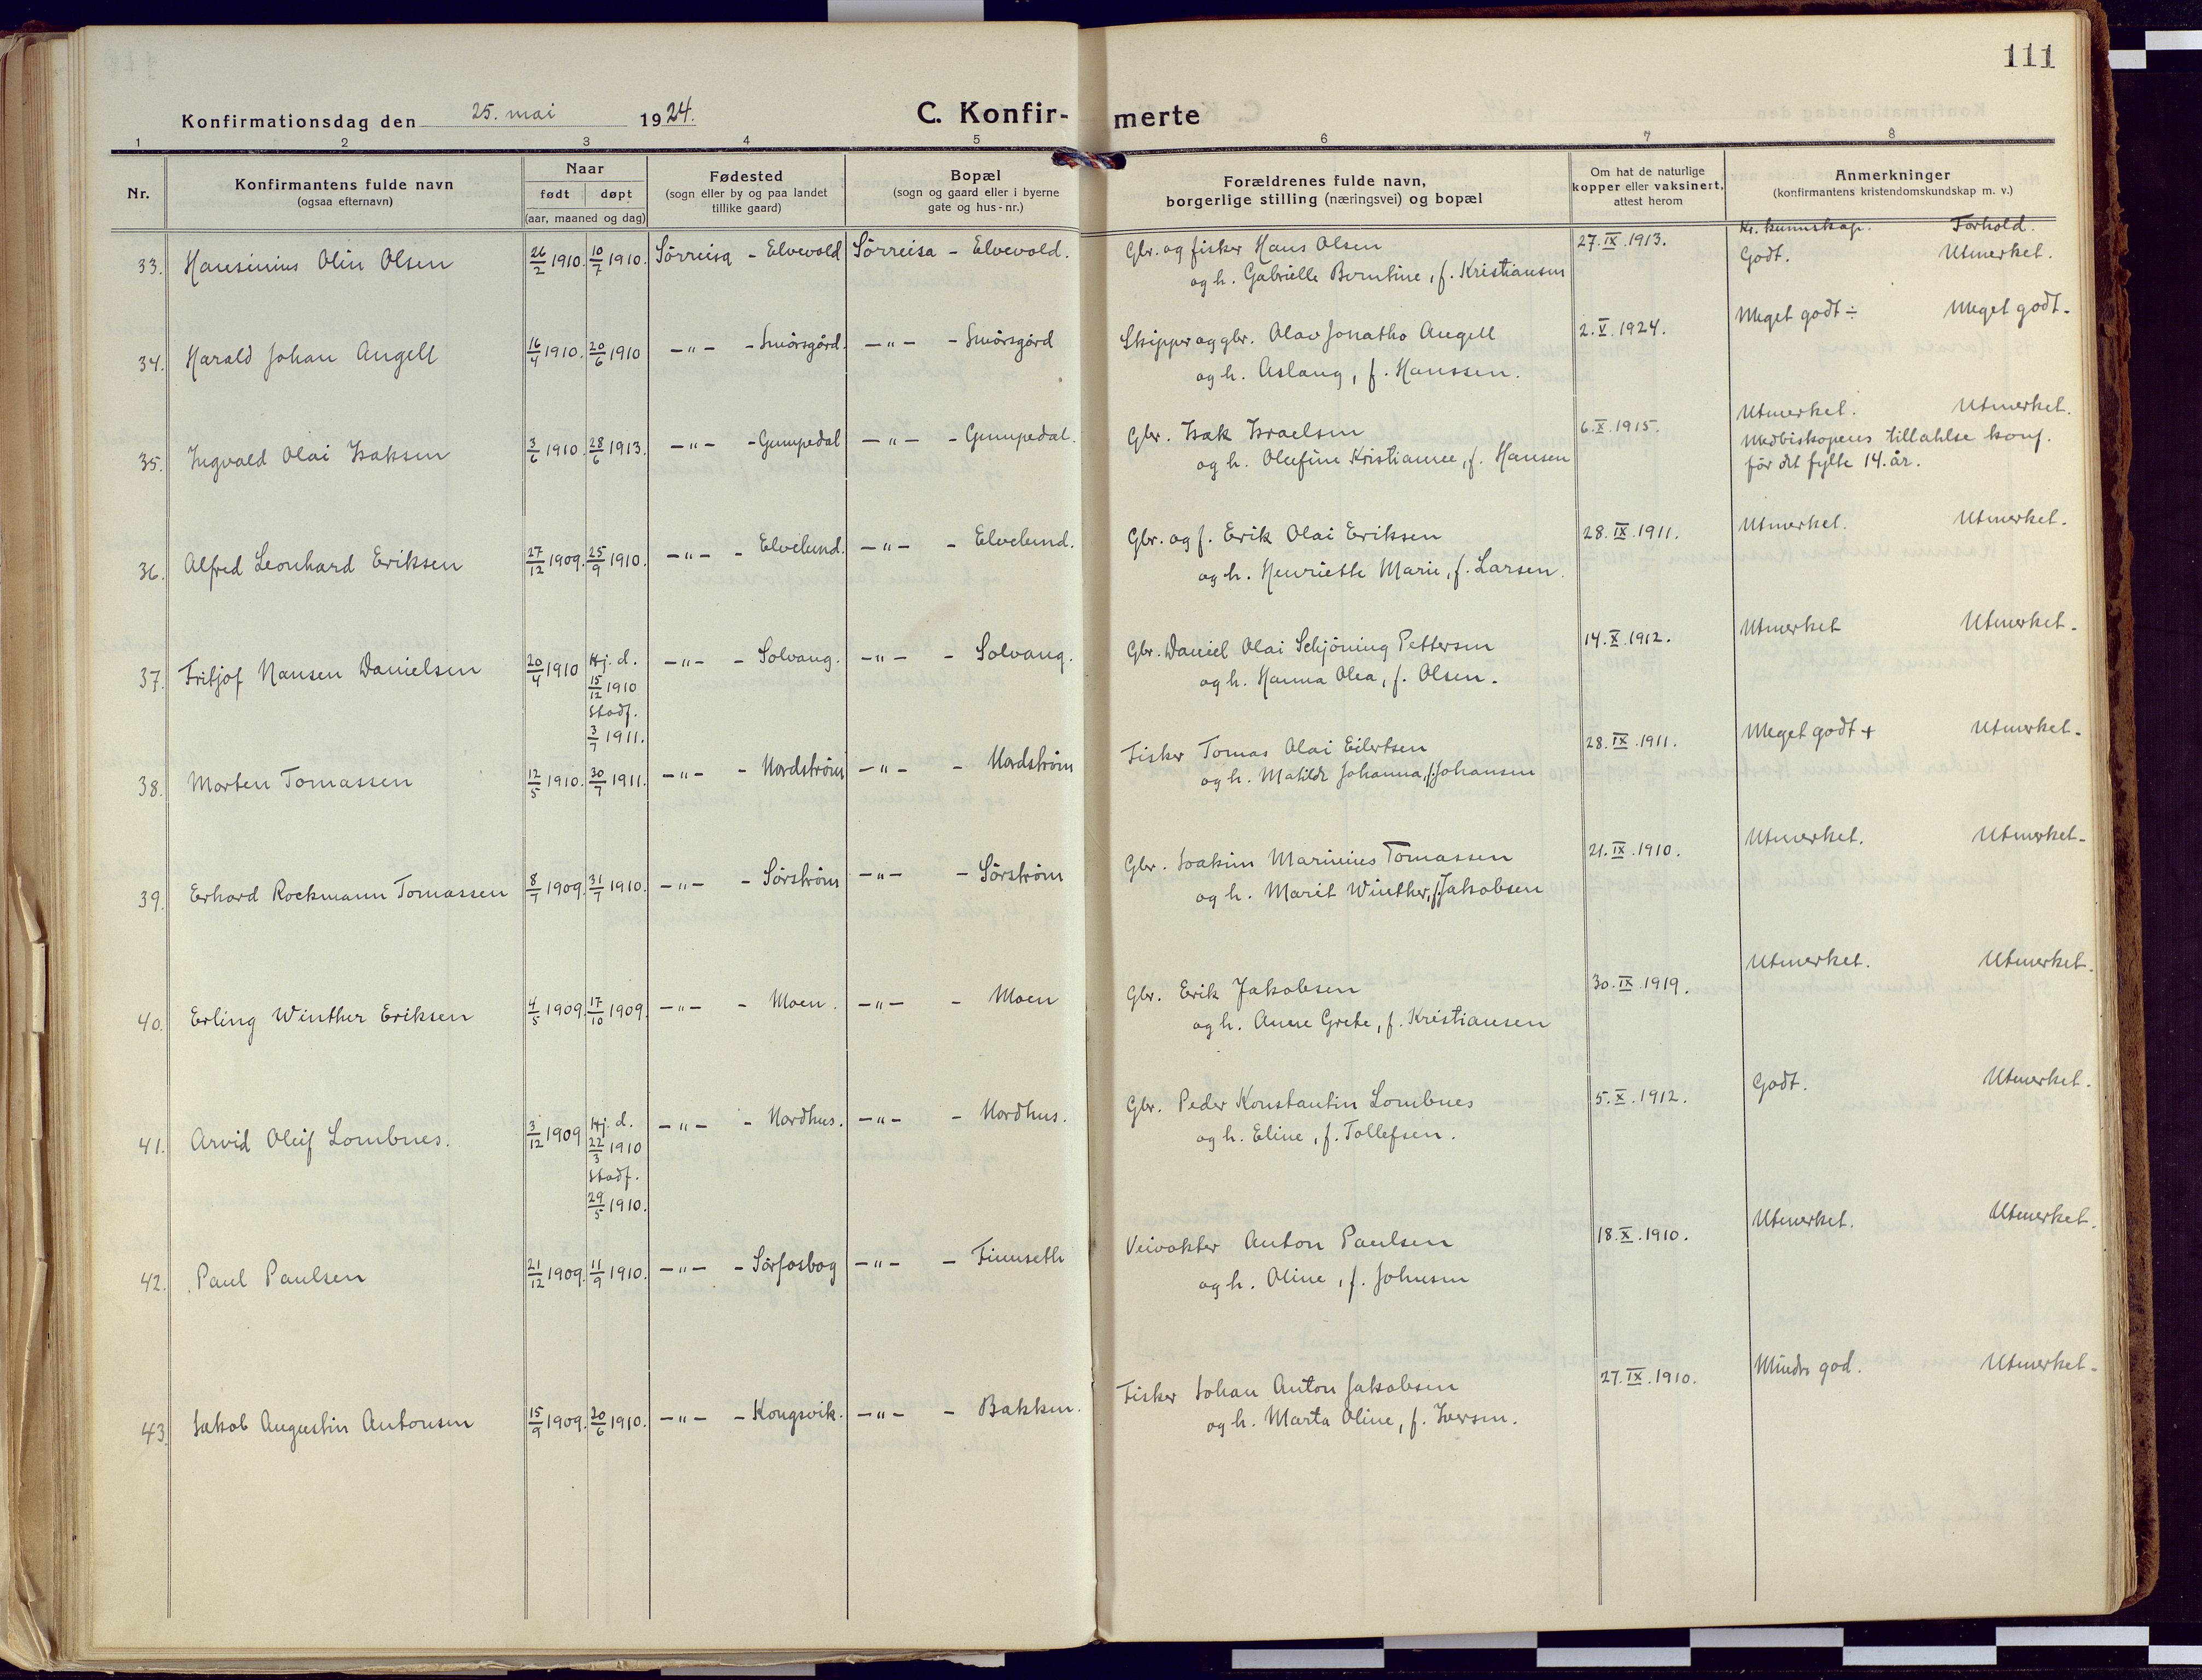 111
Konfirmationsdag den 25. mai 1924. C. Konfir- merte
1 2 3 4 5 6 7 8
Nr.
Konfirmantens fulde navn
(ogsaa efternavn)
Naar
født døpt
(aar, maaned og dag)
Fødested
(sogn eller by og paa landet
tillike gaard)
Bopæl
(sogn og gaard eller i byerne
gate og hus-nr.)
Forældrenes fulde navn,
borgerlige stilling (næringsvei) og bopæl
Om hat de naturlige
kopper eller vaksinert,
attest herom
Anmerkninger
(konfirmantens kristendomskundskap m. v.)
Kr. kunnskap. Forhold.
33. Hansinius Olin Olsen 26/2 1910. 10/7 1910. Sörreisa - Elvevold Sörreisa - Elvevold. Gbr. og fisker Hans Olsen 27.IX.1913. Godt. Utmerket.
og h. Gabrielle Berntine, f. Kristiansen
34. Harald Johan Angell 16/4 1910. 20/6 1910 -"- - Smörsgård. -"- - Smörsgård Skipper og gbr. Olav Jonatho Angell 2.V.1924. Meget godt ÷ Meget godt.
og h. Aslaug, f. Hanssen.
35. Ingvald Olai Isaksen 3/6 1910. 28/6 1913. -"- - Gumpedal -"- - Gumpedal. Gbr. Isak Israelsen 6.X.1915. Utmerket. Utmerket.
og h. Olufine Kristianne, f. Hansen Med biskopens tillatelse konf.
för det fylte 14. år.
36. Alfred Leonhard Eriksen 27/12 1909. 25/9 1910. -"- - Elvelund. -"- - Elvelund. Gbr. og f. Erik Olai Eriksen 28.IX.1911. Utmerket. Utmerket.
og h. Henriette Marie, f. Larsen.
37. Fritjof Nansen Danielsen 20/4 1910 Hj. d. -"- - Solvang. -"- - Solvang. Gbr. Daniel Olai Schjöning Pettersen 14.X.1912. Utmerket Utmerket.
15/12 1910 og h. Hanna Olea, f. Olsen.
stadf.
3/7 1911.
38. Morten Tomassen 12/5 1910. 30/7 1911. -"- - Nordström -"- - Nordström Fisker Tomas Olai Eilertsen 28.IX.1911. Meget godt + Utmerket.
og h. Matilde Johanna, f. Johansen
39. Erhard Rockmann Tomassen 8/7 1909. 31/7 1910. -"- - Sörström -"- - Sörström Gbr. Joakim Marinius Tomassen 21.IX.1910. Utmerket. Utmerket.
og h. Marit Winther, f. Jakobsen
40. Erling Winther Eriksen 4/5 1909. 17/10 1909. -"- - Moen. -"- - Moen Gbr. Erik Jakobsen 30.IX.1919. Utmerket. Utmerket.
og h. Anne Grete, f. Kristiansen
41. Arvid Oluf Lombnes. 3/12 1909 Hj. d. -"- - Nordhus. -"- - Nordhus. Gbr. Peder Konstantin Lombnes 5.X.1912. Godt. Utmerket.
22/3 1910 og h. Eline, f. Tollefsen.
stadf.
29/5 1910.
42. Paul Paulsen 21/12 1909. 11/9 1910. -"- - Sörfosbog -"- - Finnseth Veivokter Anton Paulsen 18.X.1910. Utmerket. Utmerket.
og h. Oline, f. Johnsen
43. Jakob Augustin Antonsen 15/9 1909. 20/6 1910. -"- - Kongsvik. -"- - Bakken. Fisker Johan Anton Jakobsen 27.IX.1910. Mindre god. Utmerket.
og h. Marta Oline, f. Iversen.